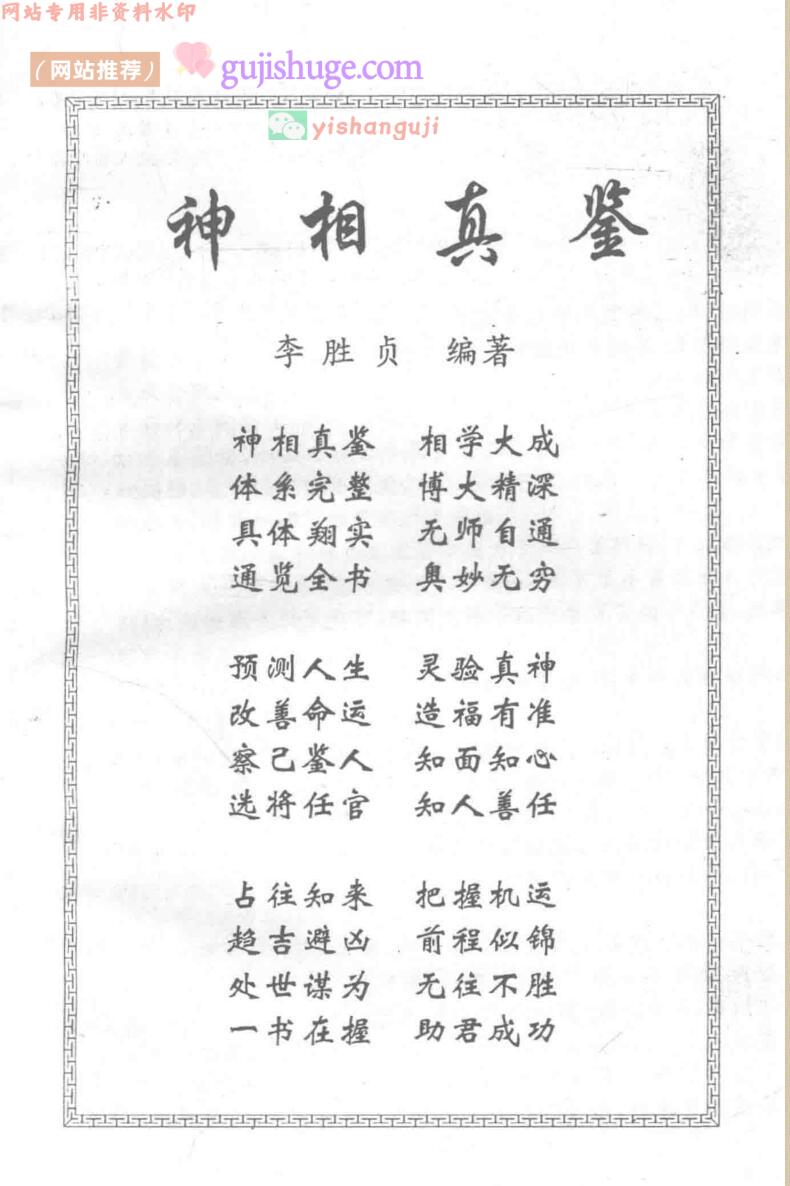 网站专用非资料水印
(网站推荐) gujishuge.com
yishanguji
神相真鉴
李胜贞 编著
神相真鉴 相学大成
体系完整 博大精深
具体翔实 无师自通
通览全书 奥妙无穷
预测人生 灵验真神
改善命运 造福有准
察己鉴人 知面知心
选将任官 知人善任
占往知来 把握机运
趋吉避凶 前程似锦
处世谋为 无往不胜
一书在握 助君成功